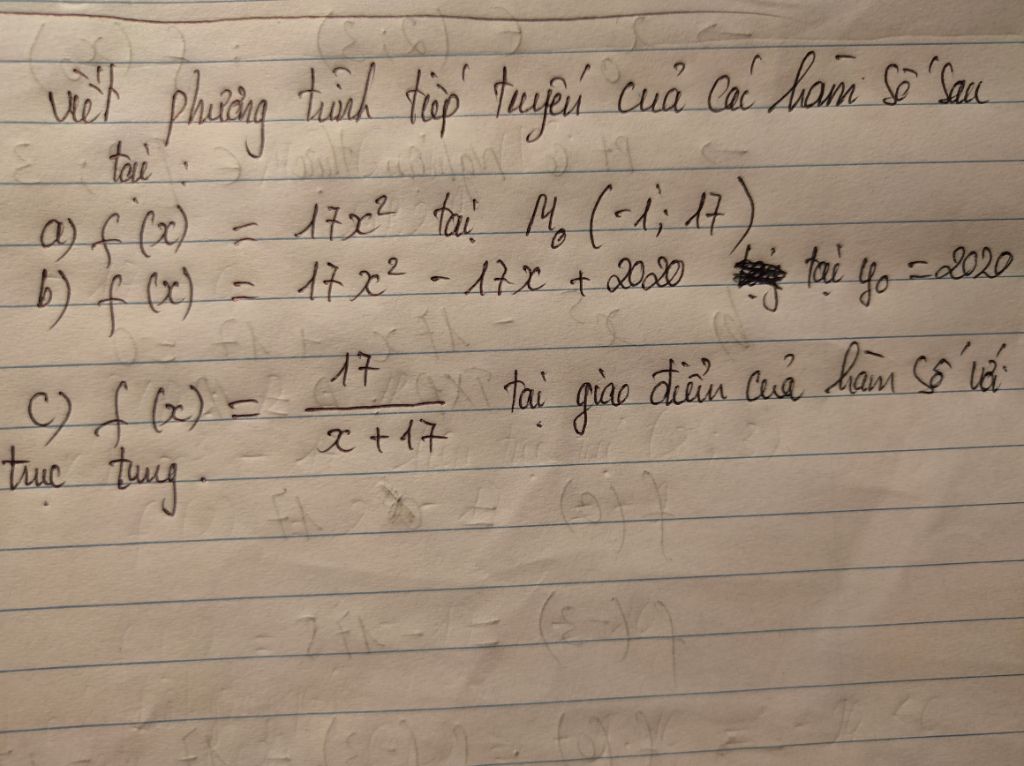 Viết phương trình tiếp tuyến của các hàm số sau
tại :
a) f(x) = 17x² tại M₀ (-1; 17)
b) f(x) = 17x² - 17x + 2020 tại y₀ = 2020
c) f(x) = 17 / (x + 17) tại giao điểm của hàm số với
trục tung.